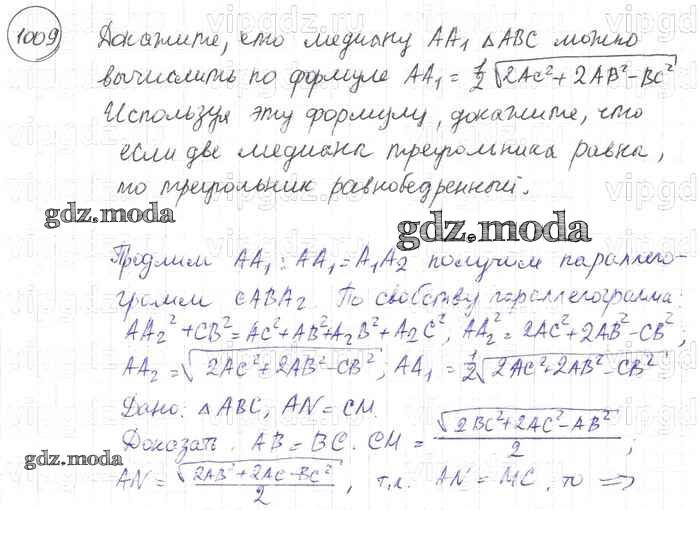 1009 Докажите, что медиану AA₁ △ABC можно
вычислить по формуле AA₁ = ½√(2AC² + 2AB² - BC²)
Используя эту формулу, докажите, что
если две медианы треугольника равны,
то треугольник равнобедренный.
gdz.moda
gdz.moda
Продлим AA₁ : AA₁ = A₁A₂ получим параллело-
грамм CABA₂. По свойству параллелограмма:
AA₂² + CB² = AC² + AB² + A₂B² + A₂C², AA₂² = 2AC² + 2AB² - CB²;
AA₂ = √(2AC² + 2AB² - CB²); AA₁ = ½√(2AC² + 2AB² - CB²)
Дано: △ABC, AN = CM.
Доказать. AB = BC. CM = √(2BC² + 2AC² - AB²)/2;
gdz.moda
AN = √(2AB² + 2AC - BC²)/2, т.к. AN = MC, то ⇒